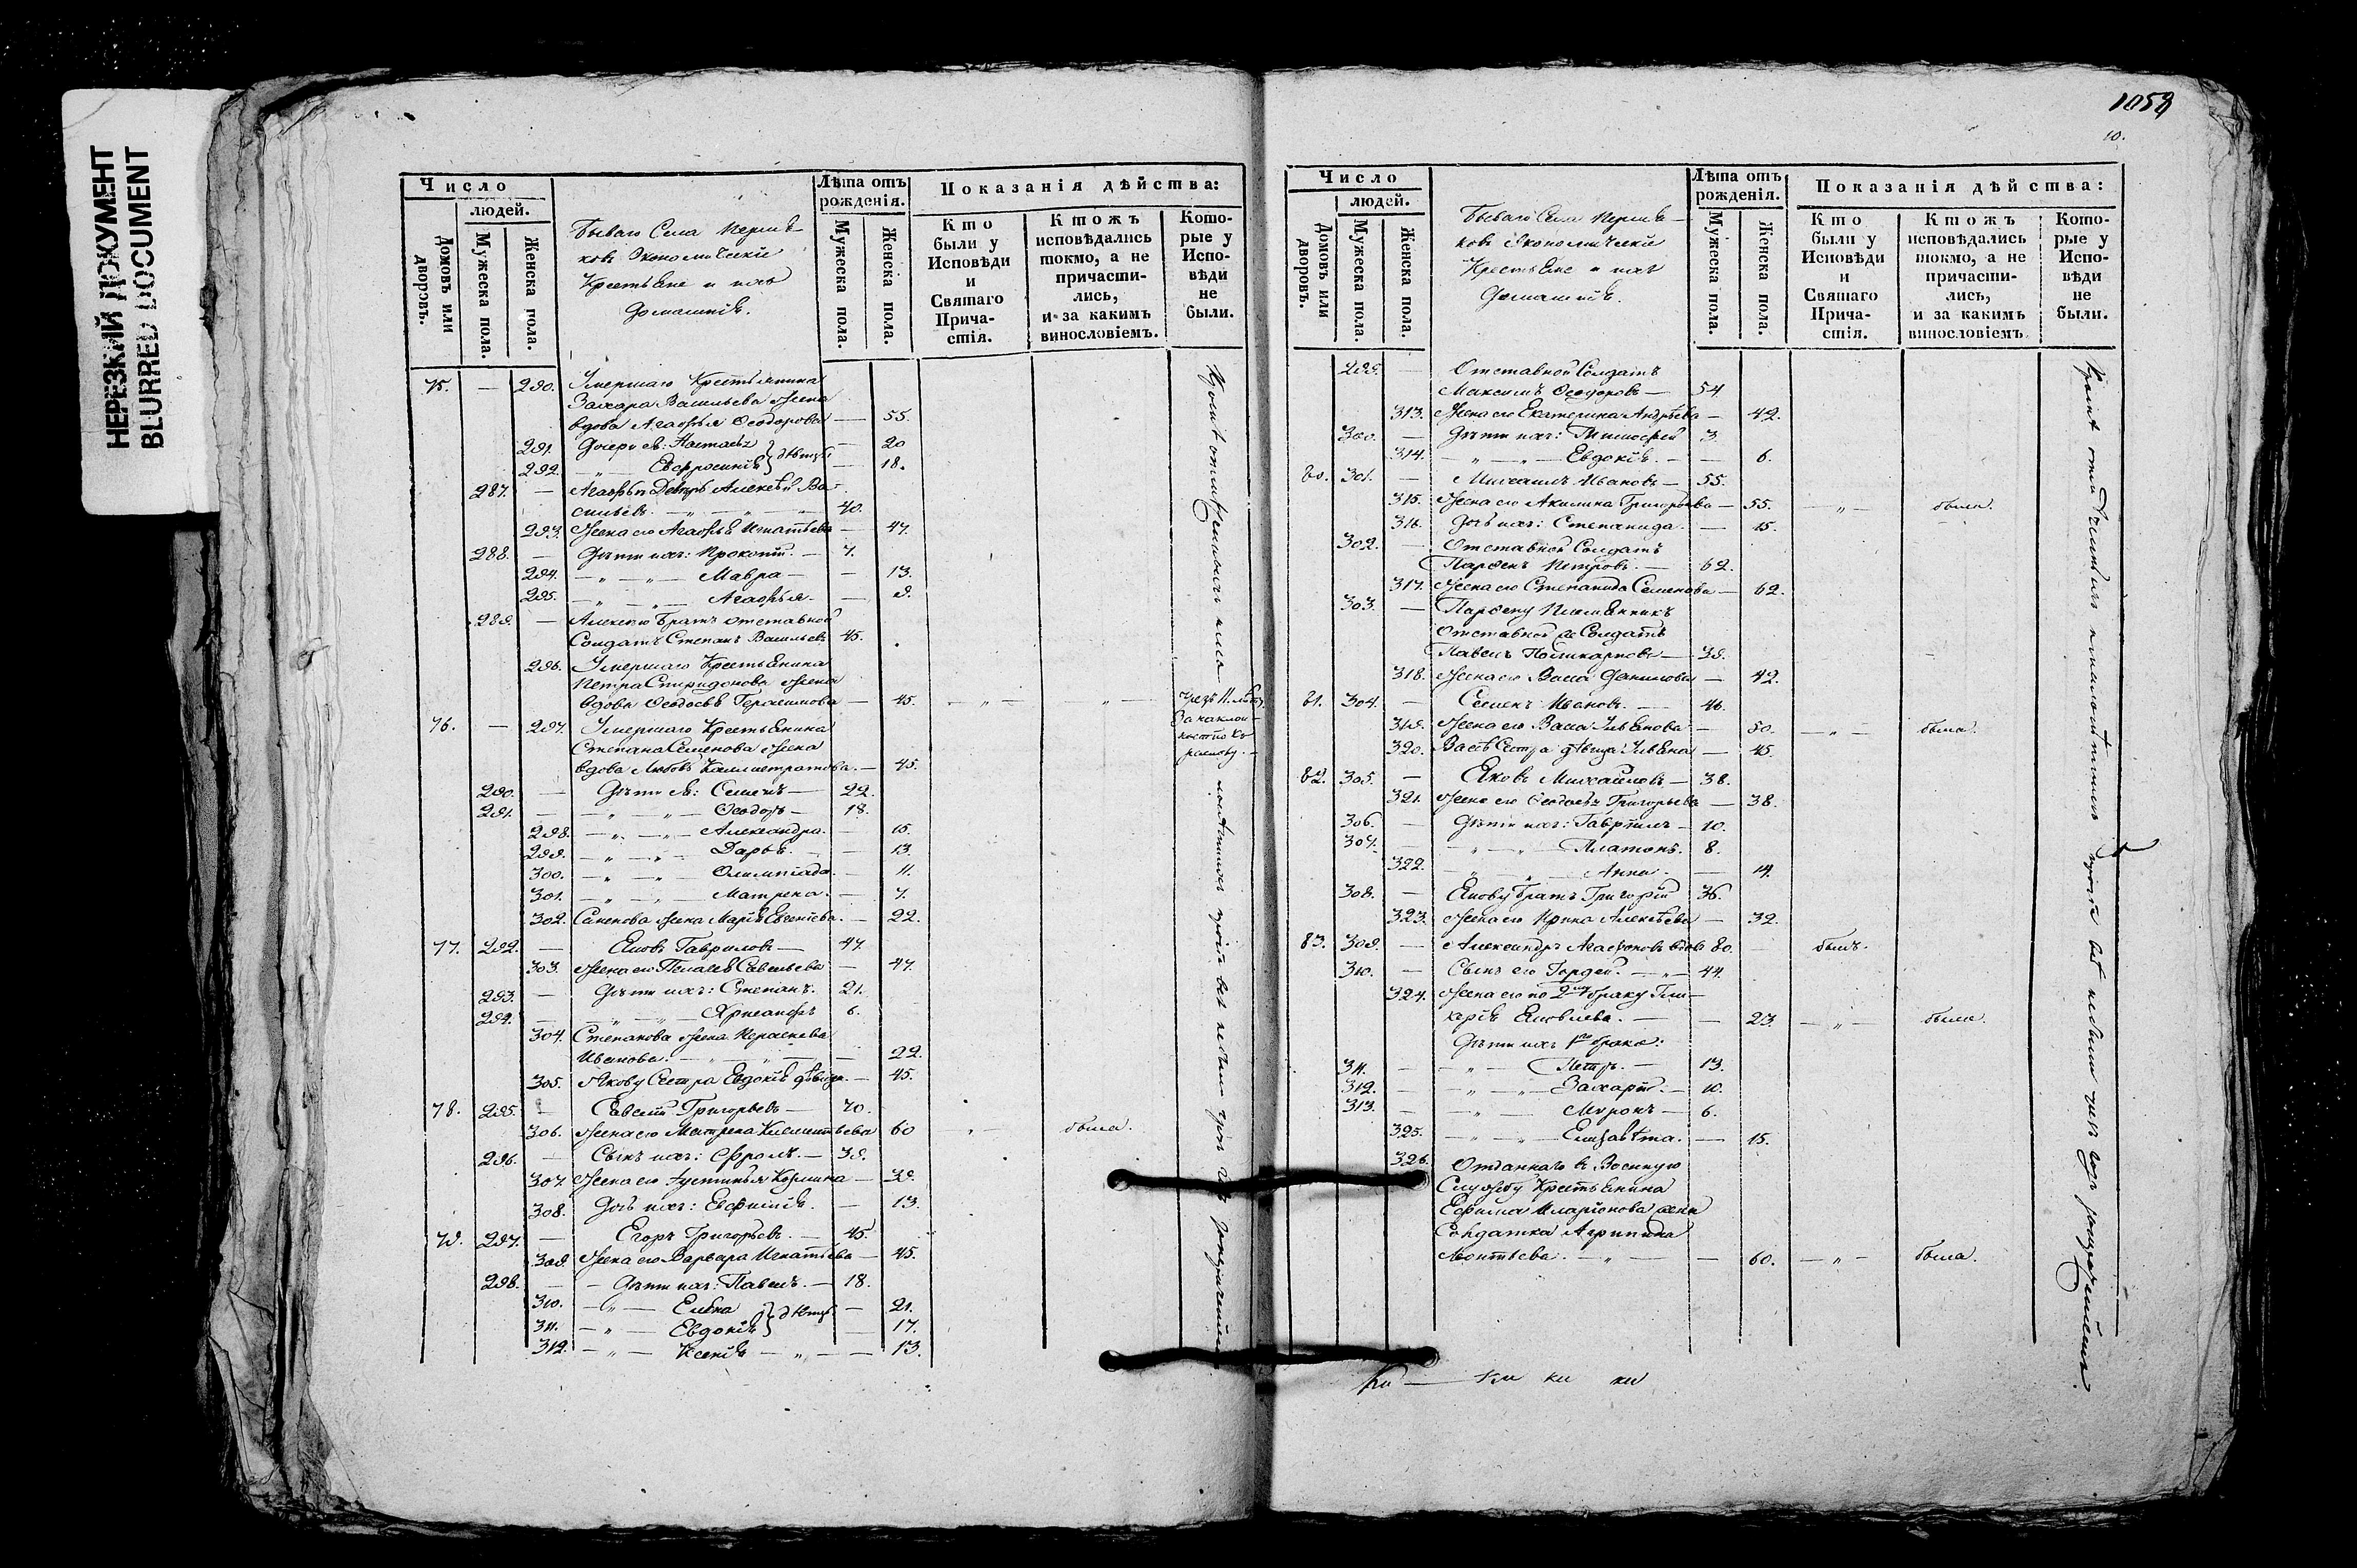 НЕРЕЗКИЙ ДОКУМЕНТ
BLURRED DOCUMENT
Число
людей.
Домовъ или дворовъ.
Мужеска пола.
Женска пола.
Бываго Села
ковъ Экономическіе
Крестьяне и ихъ
Домашніе.
Лѣта отъ рожденія.
Мужеска пола.
Женска пола.
Показанія дѣйства:
Кто были у Исповѣди и Святаго Причастія.
Ктожъ исповѣдались токмо, а не причастились, и за какимъ винословіемъ.
Которые у Исповѣди не были.
75. — 290. Умершаго Крестьянина
Захара Васильева жена
вдова Агафья Ѳеодорова — 55.
291. Дочери ея: — 20
292. — „ — Евфросинія — 18.
287. — Агафьи Деверь Алексѣй Ва-
сильевъ. — „ — „ — 40.
293. Жена его Агафья Игнатьева — 47.
288. — Дѣти ихъ: Прокопій. — 7.
294. — „ — „ — Мавра — — 13.
295. — „ — „ — Агафья. — 9.
289. — Алексѣю Братъ отставной
Солдатъ Степанъ Васильевъ 45.
296. Умершаго Крестьянина
Петра Спиридонова жена
вдова Ѳеодосья Герасимова — 45. — „ — — „ —
76. — 297. Умершаго Крестьянина
Степана Семенова жена
вдова Любовь Каллистратова. — 45.
290. — Дѣти ея: Семенъ — 22.
291. — — „ — „ — Ѳеодоръ — 18.
298. — „ — „ — Александра. — 15.
299. — „ — „ — Дарья. — — 13.
300. — „ — „ — Олимпіада. — 11.
301. — „ — „ — Матрена. — 7.
302. Семенова жена Марія Евгеніева. — 22.
77. 292. — Яковъ Гавриловъ — 47
303. Жена его Пелагея Савельева — 47.
293. — Дѣти ихъ: Степанъ. 21.
294. — — „ — „ — Хрисанфъ 6.
304. Степанова жена
Иванова. — „ — „ — — 22.
305. Якову Сестра Евдокія дѣвица. — 45.
78. 295. — Савелій Григорьевъ — 70.
306. Жена его Матрена Климентьева 60 „ — была.
296. — Сынъ ихъ: Фролъ. — 39.
307. Жена его Аустинья Козмина — 39.
308. Дочь ихъ: Евфимія. — 13.
79. 297. — Егоръ Григорьевъ. — 45.
309. Жена его Варвара Игнатьева — 45.
298. — — Дѣти ихъ: Павелъ. — 18.
310. — „ — Елена — 21.
311. — „ — Евдокія — 17.
312. — „ — Ксенія — „ — — 13.
1058
10.
Число
людей.
Домовъ или дворовъ.
Мужеска пола.
Женска пола.
Бываго Села
ковъ Экономическіе
Крестьяне и ихъ
Домашніе.
Лѣта отъ рожденія.
Мужеска пола.
Женска пола.
Показанія дѣйства:
Кто были у Исповѣди и Святаго Причастія.
Ктожъ исповѣдались токмо, а не причастились, и за какимъ винословіемъ.
Которые у Исповѣди не были.
299. — Отставной Солдатъ
Максимъ Ѳеодоровъ — 54
313. Жена его Екатерина Андрѣева — 42.
300. — Дѣти ихъ: Тимофей 3
314. — „ — „ — Евдокія. — — 6.
80. 301. — Михаилъ Ивановъ — 55.
315. Жена его Акилина Григорьева — 55. — „ — была.
316. Дочь ихъ: Степанида. — 15.
302. — Отставной Солдатъ
Парфенъ Петровъ. — 62.
317. Жена его Степанида Семенова — 62.
303. — Парфену Племянникъ
Отставной же Солдатъ
Павелъ Поликарповъ — 39.
318. Жена его Васса Данилова — 42.
81. 304. — Семенъ Ивановъ. — 46.
319. Жена его Васса Ульянова — 50. — „ — была.
320. Вассѣ Сестра дѣвица Ульяна — 45.
82. 305. — Яковъ Михайловъ — 38.
321. Жена его Ѳеодосья Григорьева — 38.
306. — Дѣти ихъ: Гавріилъ — 10.
307. — — „ — „ — Платонъ. 8.
322. — „ — „ — Анна. — 14.
308. — Якову братъ Григорій 36.
323. Жена его Ирина Алексѣева — 32.
83. 309. — Александръ Агафоновъ вдовъ 80. — былъ.
310. — Сынъ его Гордей. — „ — 44.
324. Жена его по 2му браку Гли-
керія Яковлева. — — 23. — „ — была.
Дѣти ихъ 1го брака:
311. — — „ — Петръ. — 13.
312. — — „ — „ — Захарій. — 10.
313. — — „ — Миронъ — 6.
325. — „ — „ — Елизавета. — 15.
326. Отданнаго въ Военную
Службу Крестьянина
Ефима Иларіонова жена
Солдатка Агрипина
Леонтьева. — „ — — 60. — „ — была.